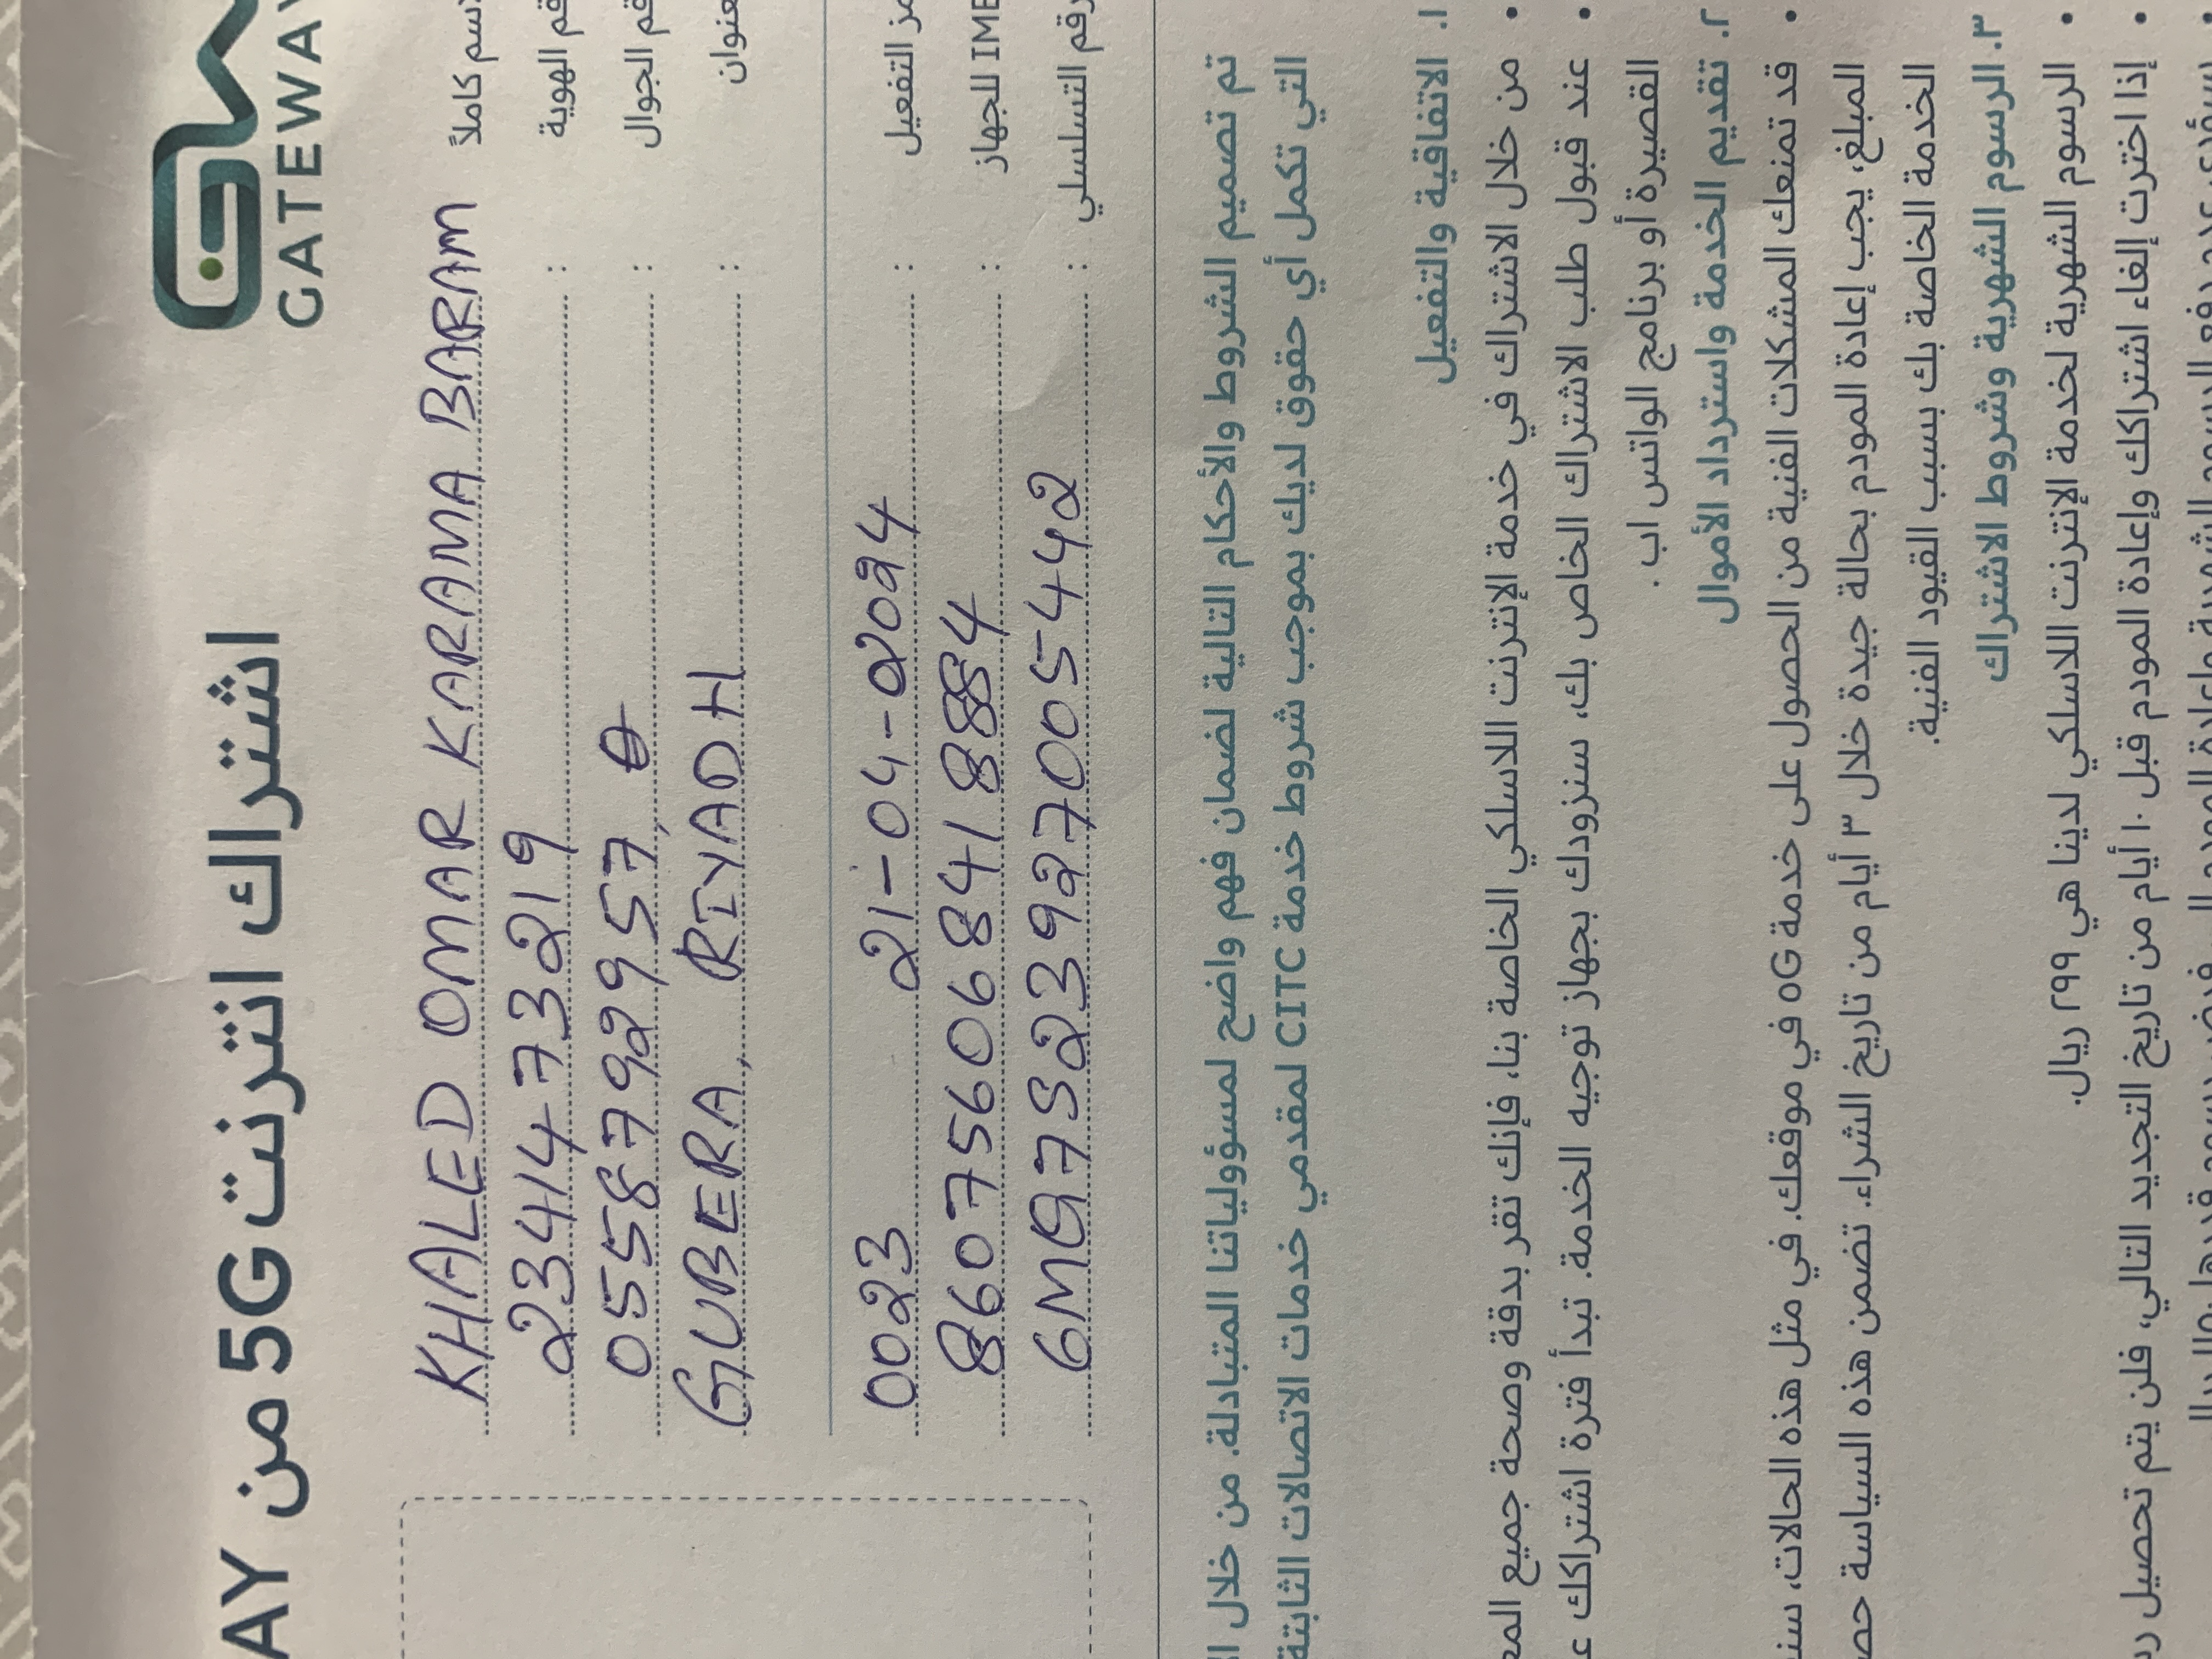 GATEWAY
اشتراك انترنت 5G من
الاسم كاملاً KHALED OMAR KARAMA BARAM
رقم الهوية : 2341473219
رقم الجوال : 0558792957
العنوان : GUBERA, RIYADH
رمز التفعيل : 0023 21-04-2024
IMEI للجهاز : 860756068418884
الرقم التسلسلي : 6MQ7S23927005442
تم تصميم الشروط والأحكام التالية لضمان فهم واضح لمسؤولياتنا المتبادلة. من خلال
التي تكمل أي حقوق لديك بموجب شروط خدمة CITC لمقدمي خدمات الاتصالات الثابتة
١. الاتفاقية والتفعيل
• من خلال الاشتراك في خدمة الإنترنت اللاسلكي الخاصة بنا، فإنك تقر بدقة وصحة جميع
• عند قبول طلب الاشتراك الخاص بك، سنزودك بجهاز توجيه الخدمة. تبدأ فترة اشتراكك
القصيرة أو برنامج الواتس اب .
٢. تقديم الخدمة واسترداد الأموال
• قد تمنعك المشكلات الفنية من الحصول على خدمة 5G في موقعك. في مثل هذه الحالات،
المبلغ، يجب إعادة المودم بحالة جيدة خلال ٣ أيام من تاريخ الشراء. تضمن هذه السياسة
الخدمة الخاصة بك بسبب القيود الفنية.
٣. الرسوم الشهرية وشروط الاشتراك
• الرسوم الشهرية لخدمة الإنترنت اللاسلكي لدينا هي ٢٩٩ ريال.
• إذا اخترت إلغاء اشتراكك وإعادة المودم قبل ١٠ أيام من تاريخ التجديد التالي، فلن يتم تحصيل